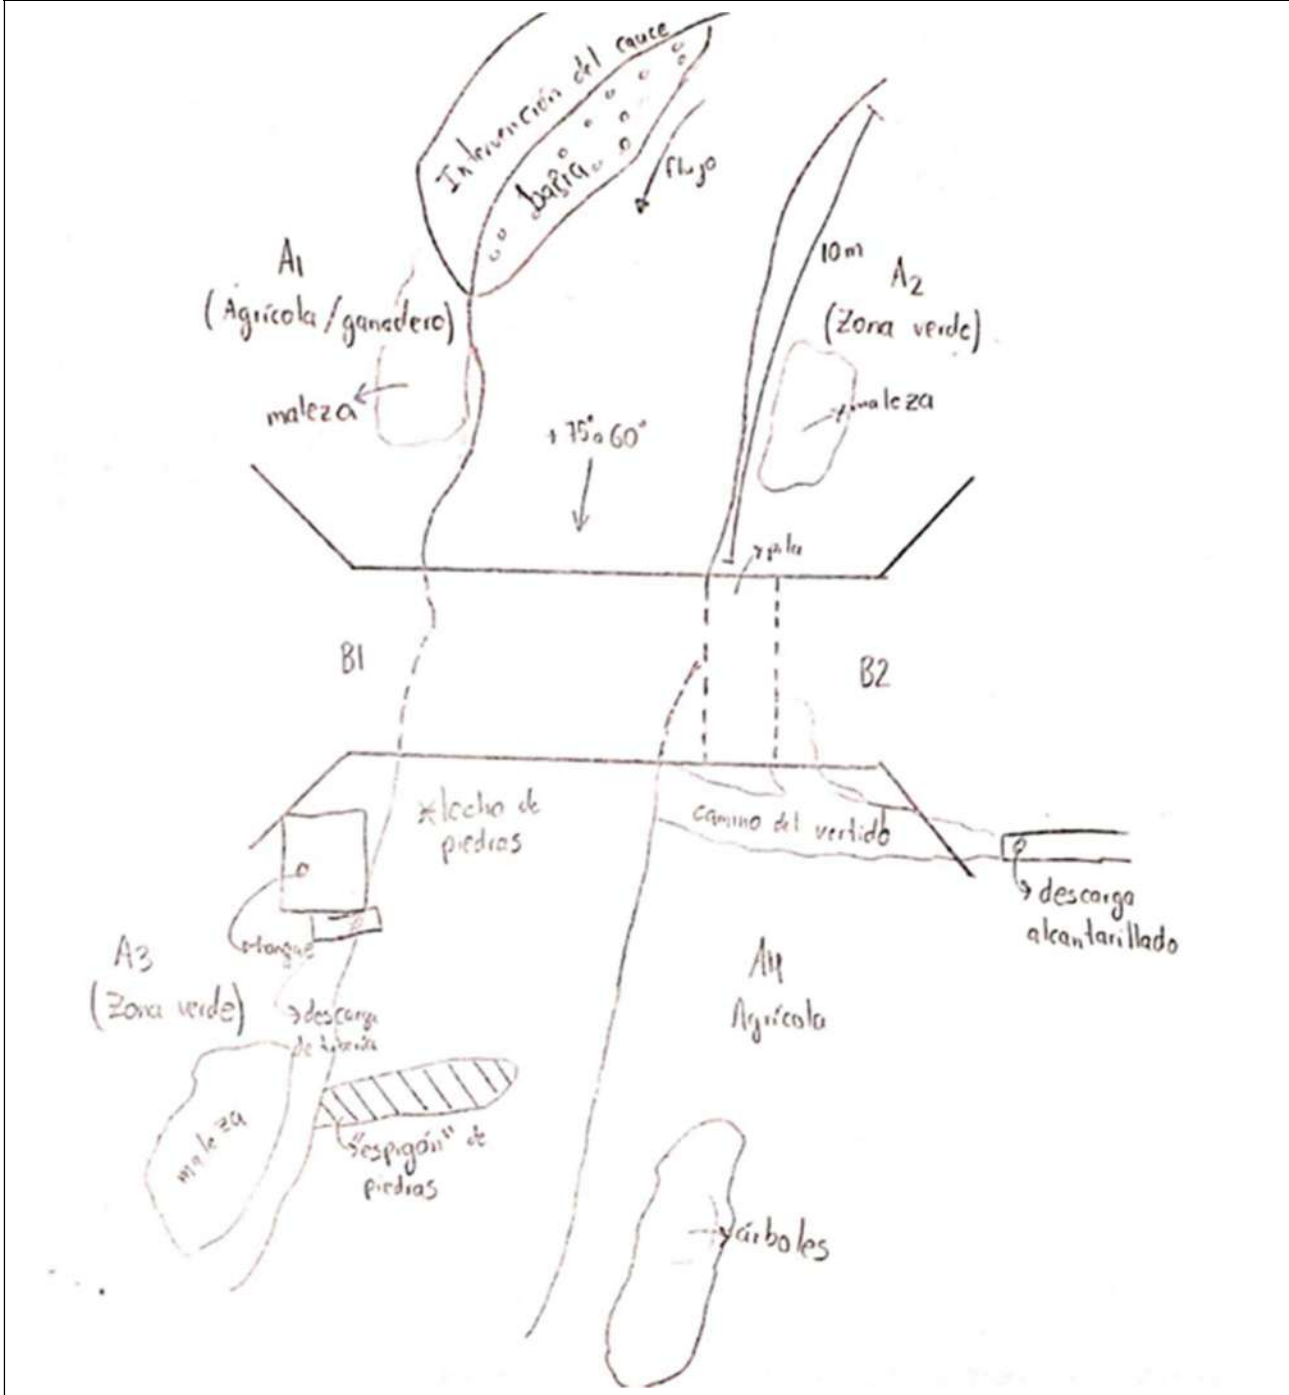 Intervención del cauce
basura
flujo
A1
(Agrícola/ganadero)
maleza
10m
A2
(Zona verde)
maleza
+ 75° a 60°
pila
B1
B2
*lecho de
piedras
camino del vertido
descarga
alcantarillado
tanque
A3
(Zona verde)
descarga
de tubería
maleza
"espigón" de
piedras
A4
Agrícola
árboles